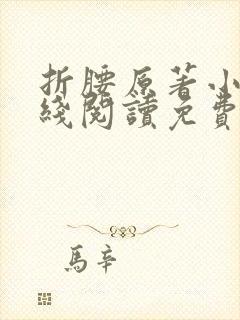 折腰原著小
綫閱讀免費
馬辛